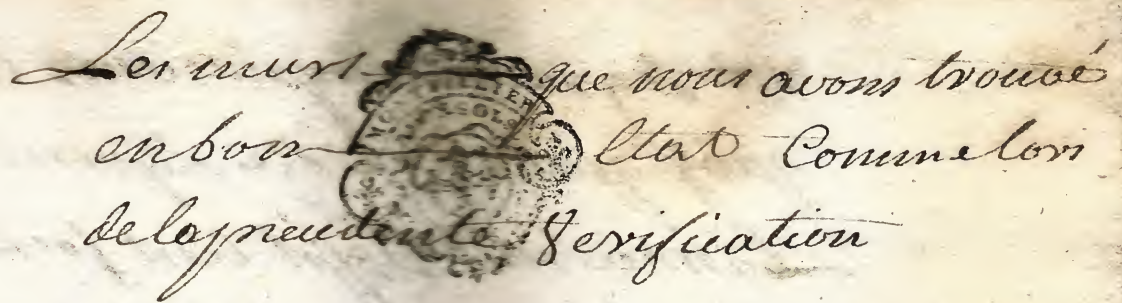 Les murs que nous avons trouvé
en bon Etat Comme lors
de la precedente Verification